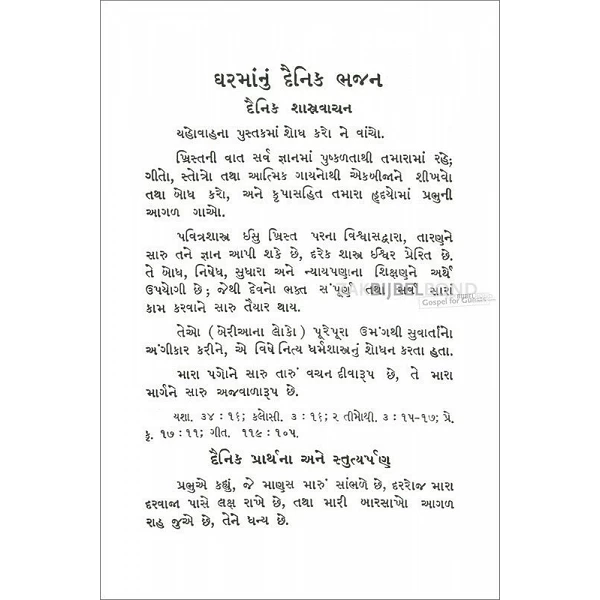 ઘરમાંનું દૈનિક ભજન
દૈનિક શાસ્ત્રવાચન
યહોવાહના પુસ્તકમાં શોધ કરો ને વાંચો.
ખ્રિસ્તની વાત સર્વ જ્ઞાનમાં પુષ્કળતાથી તમારામાં રહે;
ગીતો, સ્તોત્રો તથા આત્મિક ગાયનોથી એકબીજાને શીખવો
તથા બોધ કરો, અને કૃપાસહિત તમારા હૃદયોમાં પ્રભુની
આગળ ગાઓ.
પવિત્રશાસ્ત્ર ઈસુ ખ્રિસ્ત પરના વિશ્વાસદ્વારા, તારણને
સારુ તને જ્ઞાન આપી શકે છે, દરેક શાસ્ત્ર ઈશ્વર પ્રેરિત છે.
તે બોધ, નિષેધ, સુધારા અને ન્યાયપણાના શિક્ષણને અર્થે
ઉપયોગી છે; જેથી દેવનો ભક્ત સંપૂર્ણ તથા સર્વ સારાં
કામ કરવાને સારુ તૈયાર થાય.
તેઓ (બેરીઆના લોકો) પૂરેપૂરા ઉમંગથી સુવાર્તાનો
અંગીકાર કરીને, એ વિષે નિત્ય ધર્મશાસ્ત્રનું શોધન કરતા હતા.
મારા પગોને સારુ તારું વચન દીવારૂપ છે, તે મારા
માર્ગને સારુ અજવાળારૂપ છે.
યશા. ૩૪ : ૧૬; કલોસી. ૩ : ૧૬; ૨ તીમોથી. ૩ : ૧૫-૧૭; પ્રે.
કૃ. ૧૭ : ૧૧; ગીત. ૧૧૯ : ૧૦૫.
દૈનિક પ્રાર્થના અને સ્તુત્યર્પણ
પ્રભુએ કહ્યું, જે માણસ મારું સાંભળે છે, દરરોજ મારા
દરવાજા પાસે લક્ષ રાખે છે, તથા મારી બારસાખો આગળ
રાહ જુએ છે, તેને ધન્ય છે.